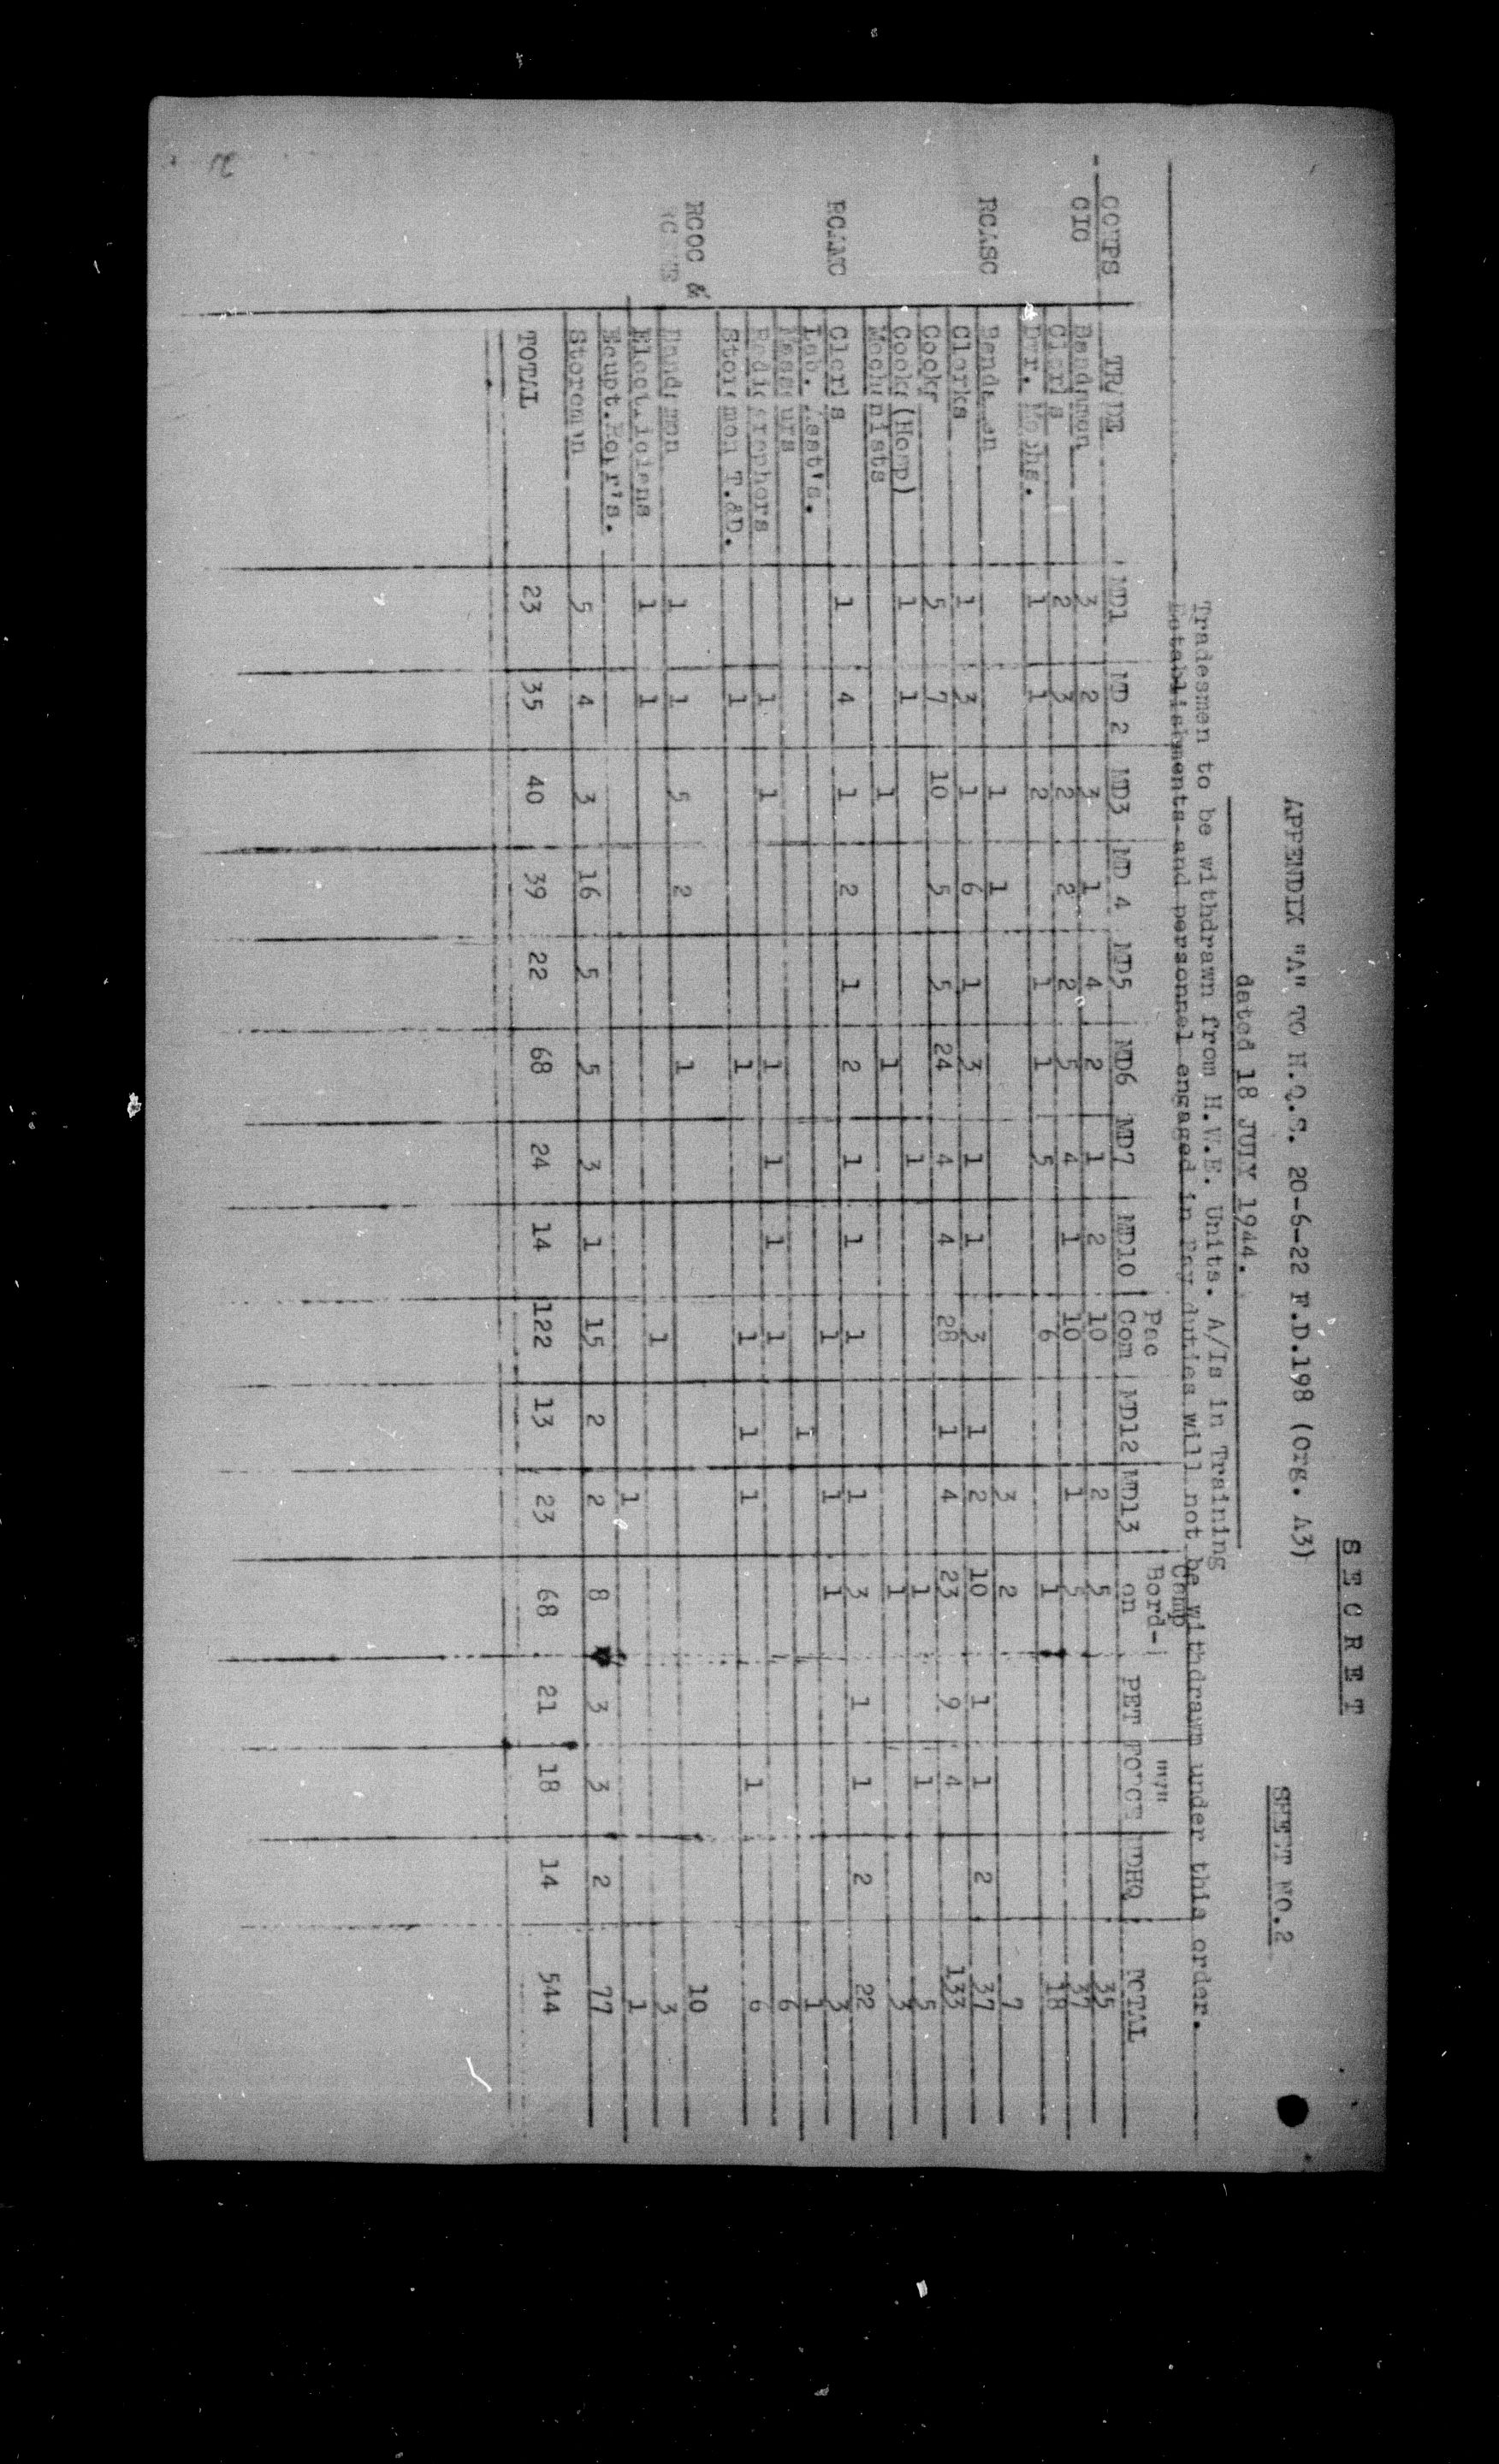 S E C R E T
SHEET NO.2
APPENDIX "A" TO H.Q.S. 20-6-22 F.D.198 (Org. A3)
dated 18 JULY 1944.
Tradesmen to be withdrawn from H.W.E. Units. A/Is in Training
Establishments and personnel engaged in Pay duties will not be withdrawn under this order.
CORPS TRADE MD1 MD 2 MD3 MD 4 MD5 MD6 MD7 MD10 Pac Com MD12 MD13 Camp Bord-on PET TOTAL
CIC Bandsmen 3 2 3 1 4 2 1 2 10 2 5 35
Clerks 2 3 2 2 2 5 4 1 10 1 5 37
Dvr. Mechs. 1 1 2 1 1 5 6 1 18
RCASC Bandsmen 1 1 3 2 7
Clerks 1 3 1 6 1 3 1 1 3 1 2 10 1 1 2 37
Cooks 5 7 10 5 5 24 4 4 28 1 4 23 9 4 133
Cooks (Hosp) 1 1 1 1 1 5
Mechanists 1 1 1 3
RCAMC Clerks 1 4 1 2 1 2 1 1 1 1 3 1 1 2 22
Lab. Asst's. 1 1 1 3
Masseurs 1 1
Radiographers 1 1 1 1 1 1 6
Storemen T.&D. 1 1 1 1 1 1 6
RCOC & Bandsmen 1 1 5 2 1 10
Electricians 1 1 1 3
Equpt.Repr's. 1 1
Storemen 5 4 3 16 5 5 3 1 15 2 2 8 3 3 2 77
TOTAL 23 35 40 39 22 68 24 14 122 13 23 68 21 18 14 544